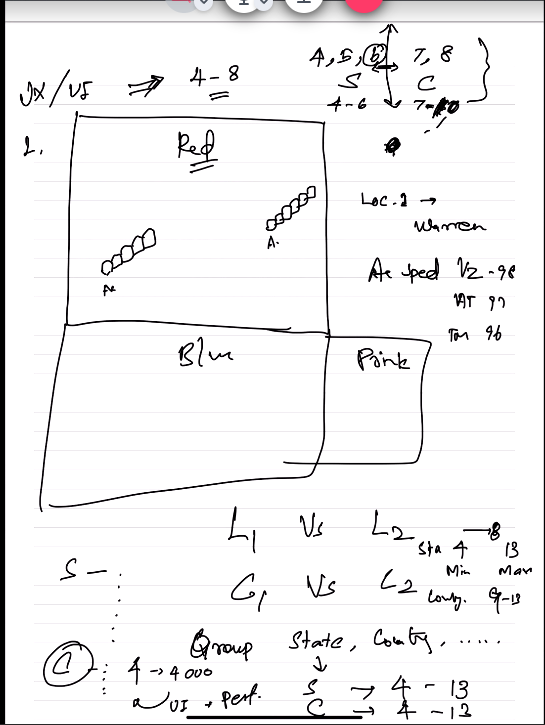 4, 5, 6 7, 8
UX / UI ⇒ 4 - 8 S C
4 - 6
1. Red
Loc. 2 →
Warren
A. A.
Vz - 98
AT 97
Tm 96
Blue Pink
L1 Vs L2
Sta 4 → 8 13
Min Max
S - C1 Vs C2
County. 9-13
Group State, County, ......
C 4 → 4000
UI + Perf. S → 4 - 13
C → 4 - 13